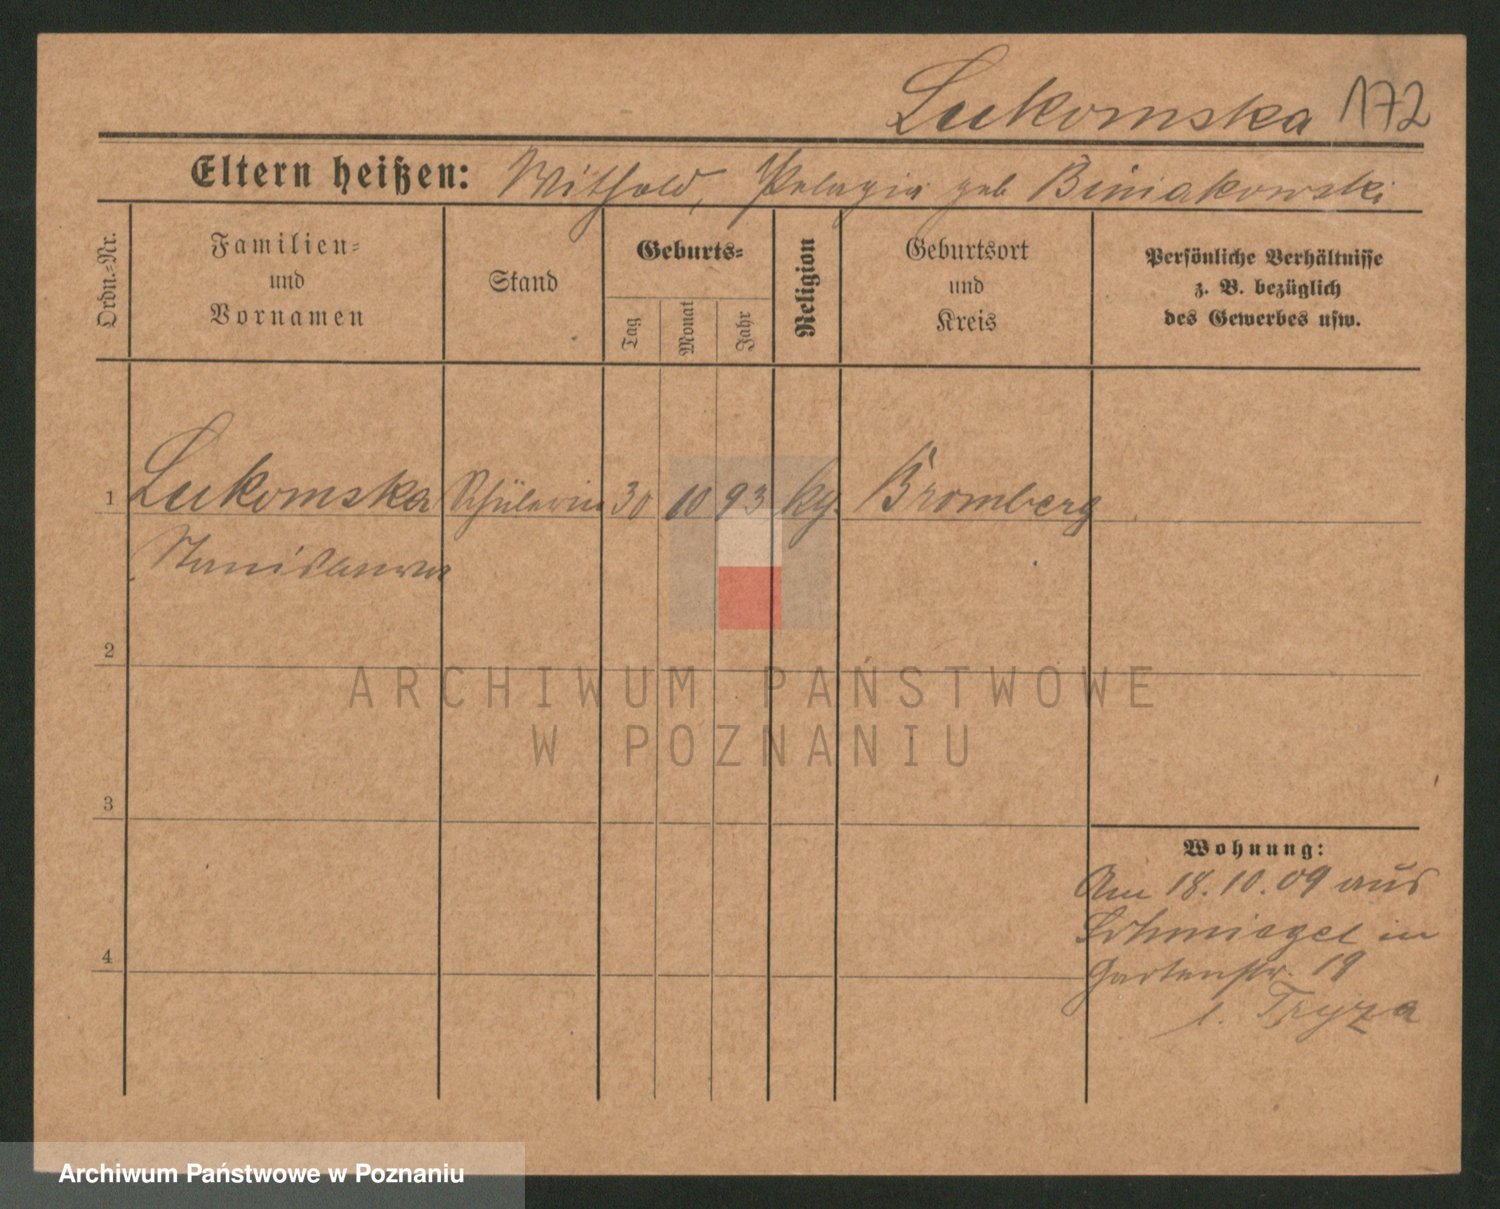 Lukomska 172
Eltern heißen: Withold, Pelagia geb Biniakowski
Ordn.-Nr.
Familien-
und
Vornamen
Stand
Geburts-
Tag
Monat
Jahr
Religion
Geburtsort
und
Kreis
Persönliche Verhältnisse
z. B. bezüglich
des Gewerbes usw.
1 Lukomska Schülerin 30 10 93 Bromberg
Stanislawa
2
3
4
Wohnung:
Am 18.10.09 aus
Schmiegel in
Gartenstr. 19
ARCHIWUM PAŃSTWOWE
W POZNANIU
Archiwum Państwowe w Poznaniu